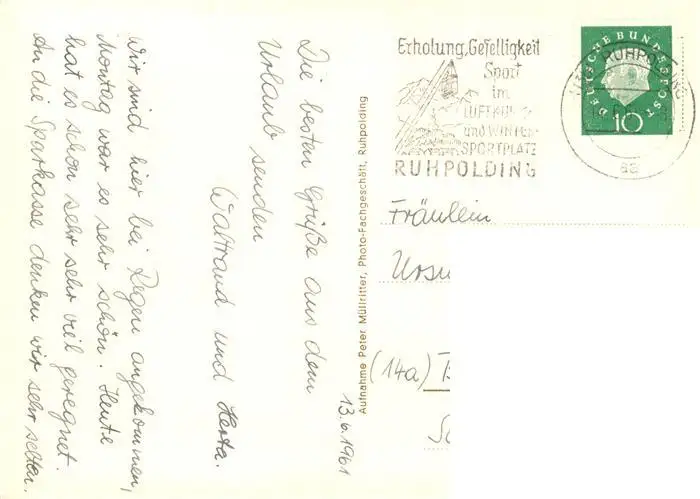 Die besten Grüße aus dem
Urlaub senden
Waltraud und Herta.
Wir sind hier bei Regen angekommen,
Montag war es sehr schön. Heute
hat es schon sehr sehr viel geregnet.
An die Sparkasse denken wir sehr selten.
13.6.1961
Aufnahme Peter Müllritter, Photo-Fachgeschäft, Ruhpolding
Erholung, Geselligkeit
Sport
im
LUFTKUR-
und WINTER-
SPORTPLATZ
RUHPOLDING
DEUTSCHE BUNDESPOST
10
RUHPOLDING
aa
Fräulein
Ursu
(14a)